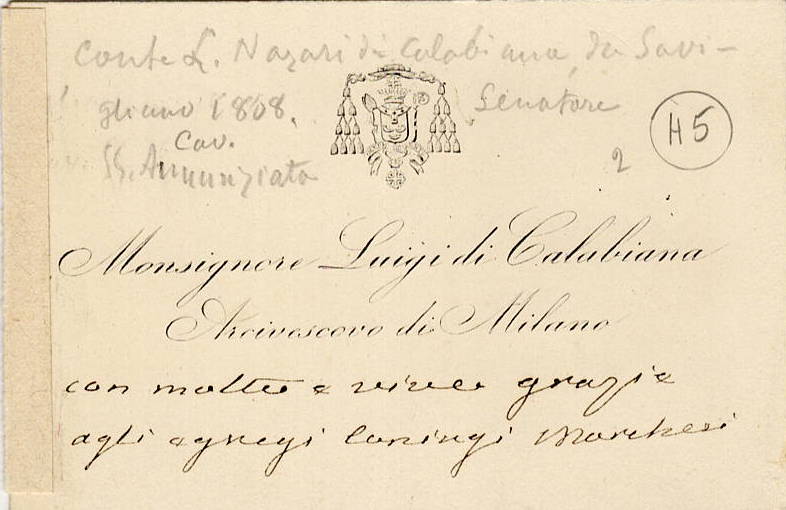 Conte L. Nazari di Calabiana, da Savi-
gliano 1808. Senatore
Cav.
SS. Annunziata
2
H5
Monsignore Luigi di Calabiana
Arcivescovo di Milano
con molte e vive grazie
agli egregi coniugi Marchesi